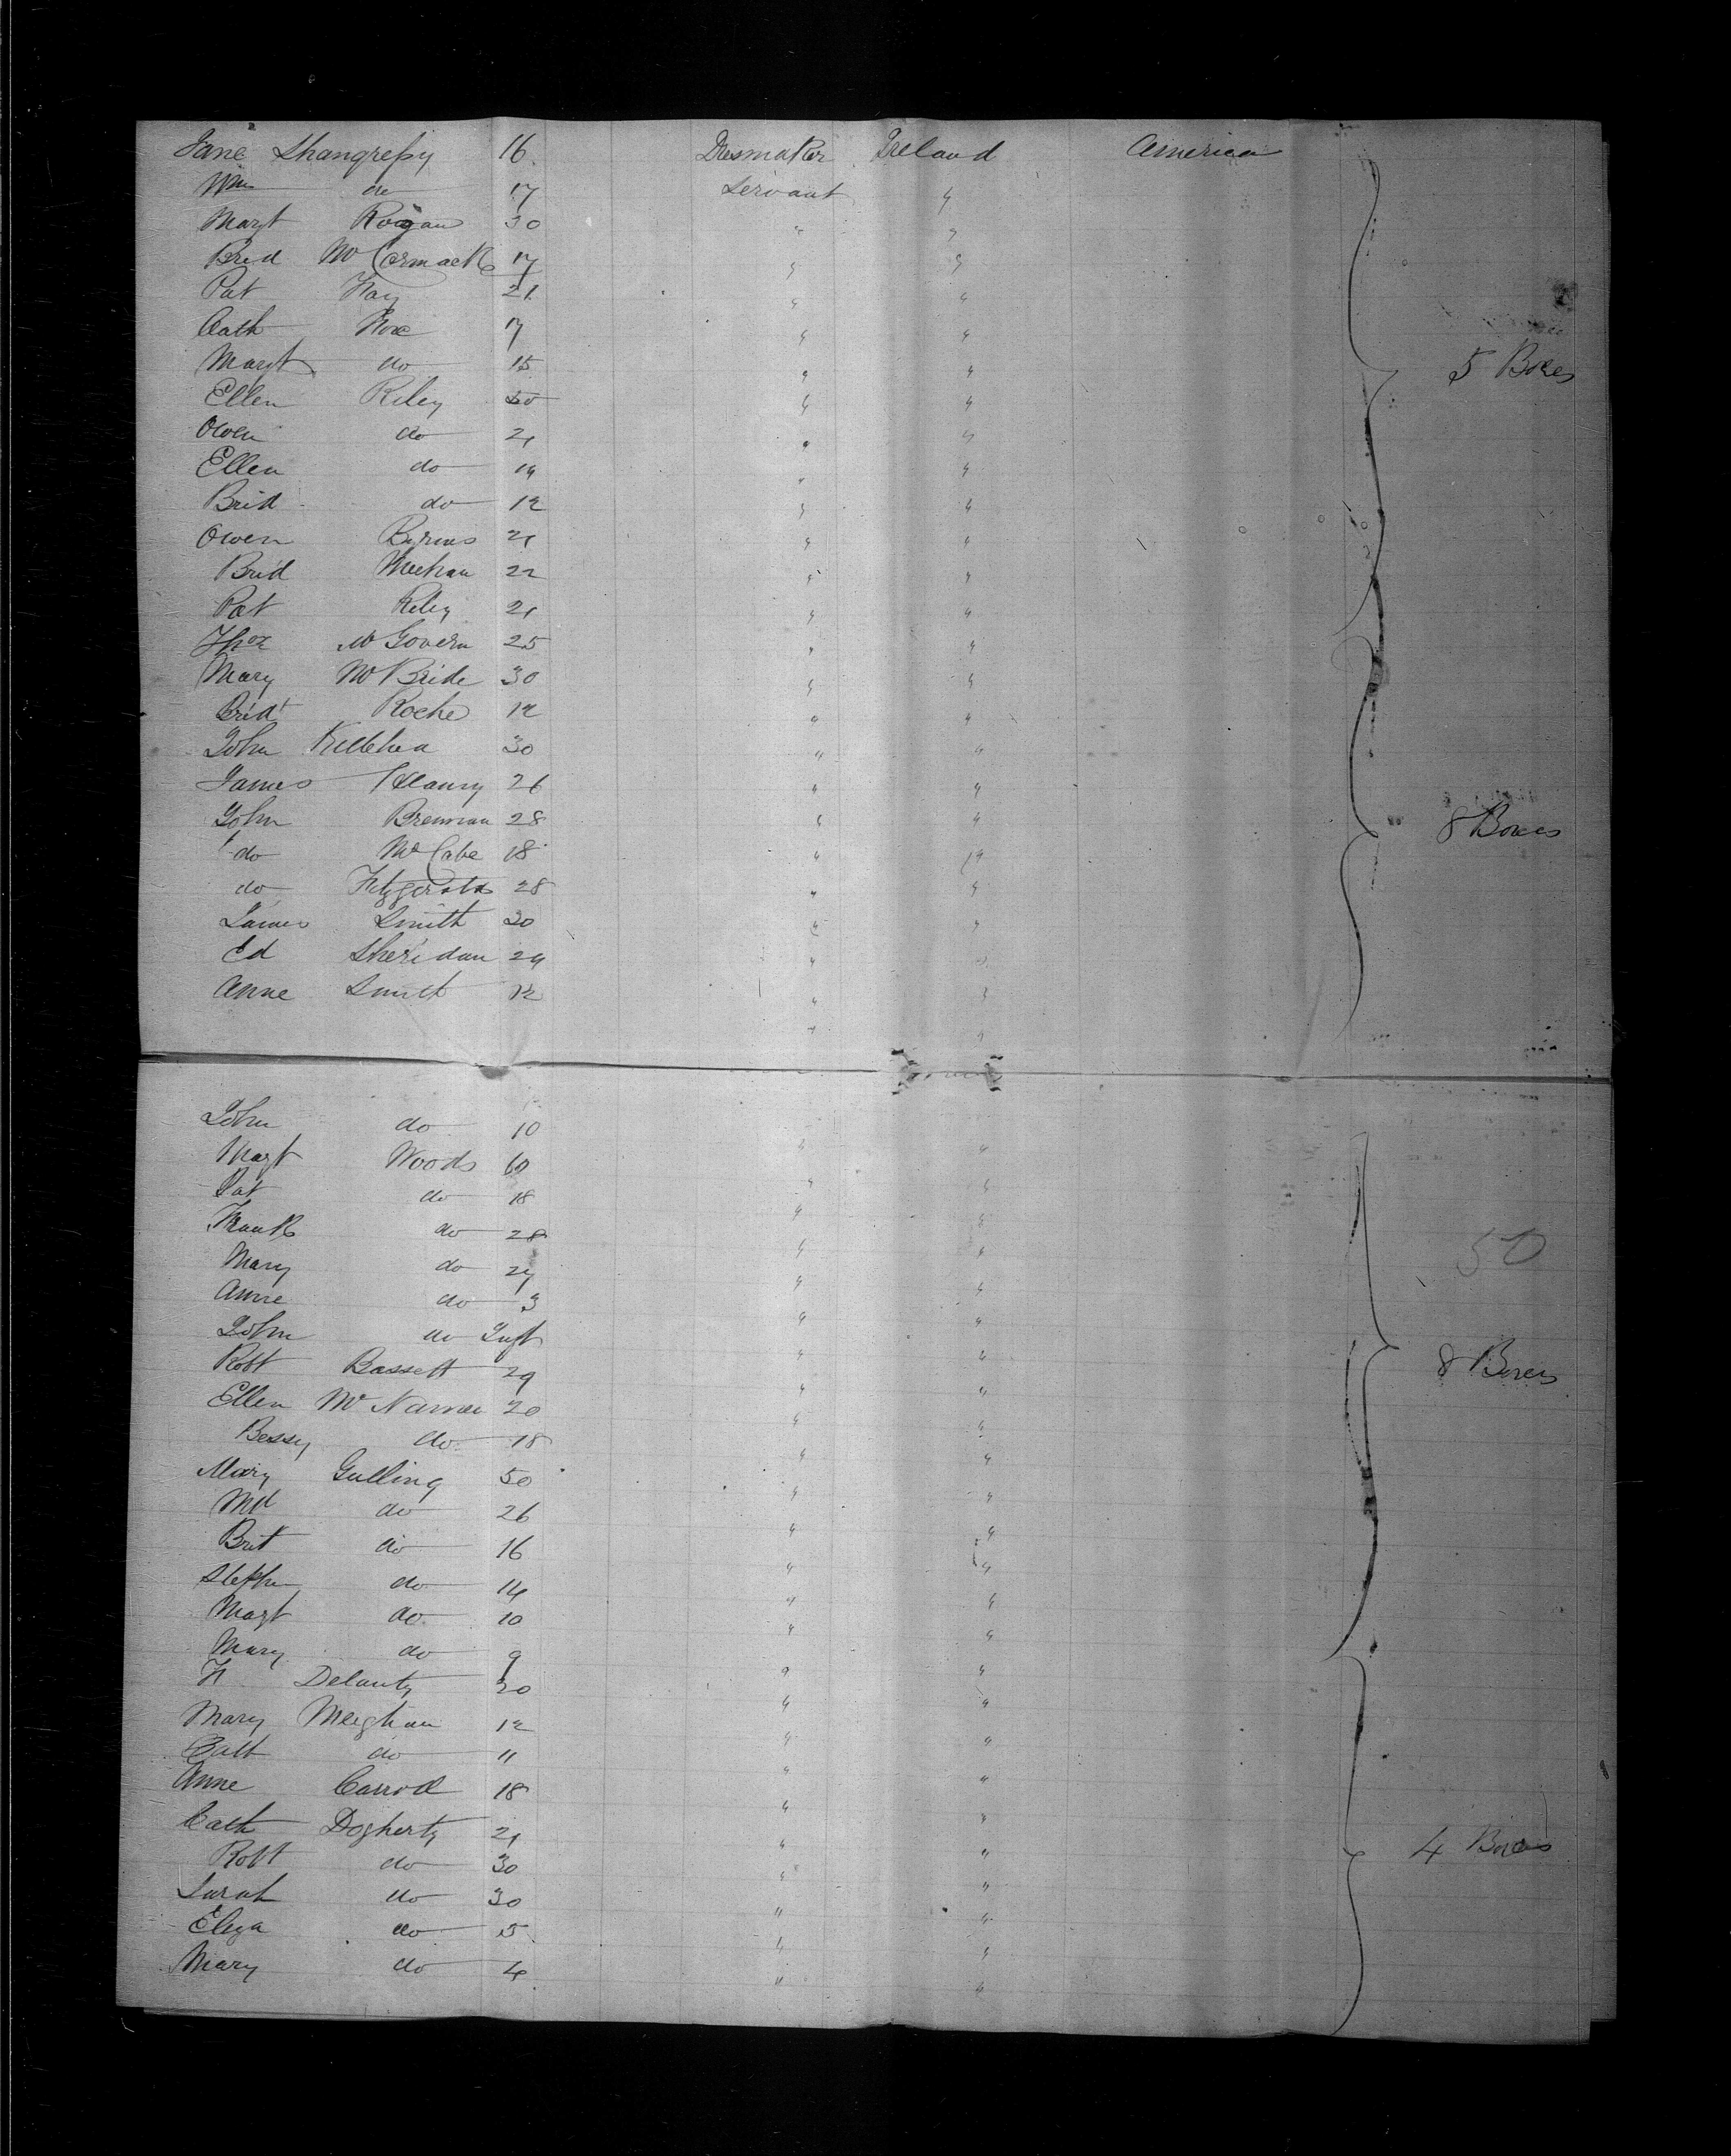 Jane Shangressy 16 Dresmaker Ireland America
Wm do 17 Servant "
Margt Rogan 30 " "
Brid McCormack 17 " "
Pat Fay 21 " "
Cath Fox 17 " "
Margt do 15 " "
5 Boxes
Ellen Riley 50 " "
Owen do 21 " "
Ellen do 19 " "
Brid do 12 " "
Owen Byrnes 21 " "
Brid Meehan 22 " "
Pat Riley 21 " "
Thos McGovern 25 " "
Mary McBride 30 " "
Bridt Roche 12 " "
John 30 " "
James 26 " "
John Brennan 28 " "
8 Boxes
do McCabe 18 " "
do Fitzgerald 28 " "
James Smith 20 " "
Ed Sheridan 24 " "
Anne Smith 12 " "
John do 10 " "
Margt Woods 60 " "
Pat do 18 " "
Frank do 28 " "
50
Mary do 27 " "
Anne do 3 " "
John do Inft " "
Robt Bassett 29 " "
8 Boxes
Ellen McNamee 20 " "
Bessy do 18 " "
Mary Gulling 50 " "
Ml do 26 " "
Brit do 16 " "
Stephn do 14 " "
Margt do 10 " "
Mary do 9 " "
H Delanty 30 " "
Mary Meighan 12 " "
Cath do 11 " "
Anne Carroll 18 " "
Cath Dogherty 21 " "
4 Boxes
Robt do 30 " "
Sarah do 30 " "
Eliza do 5 " "
Mary do 4 " "